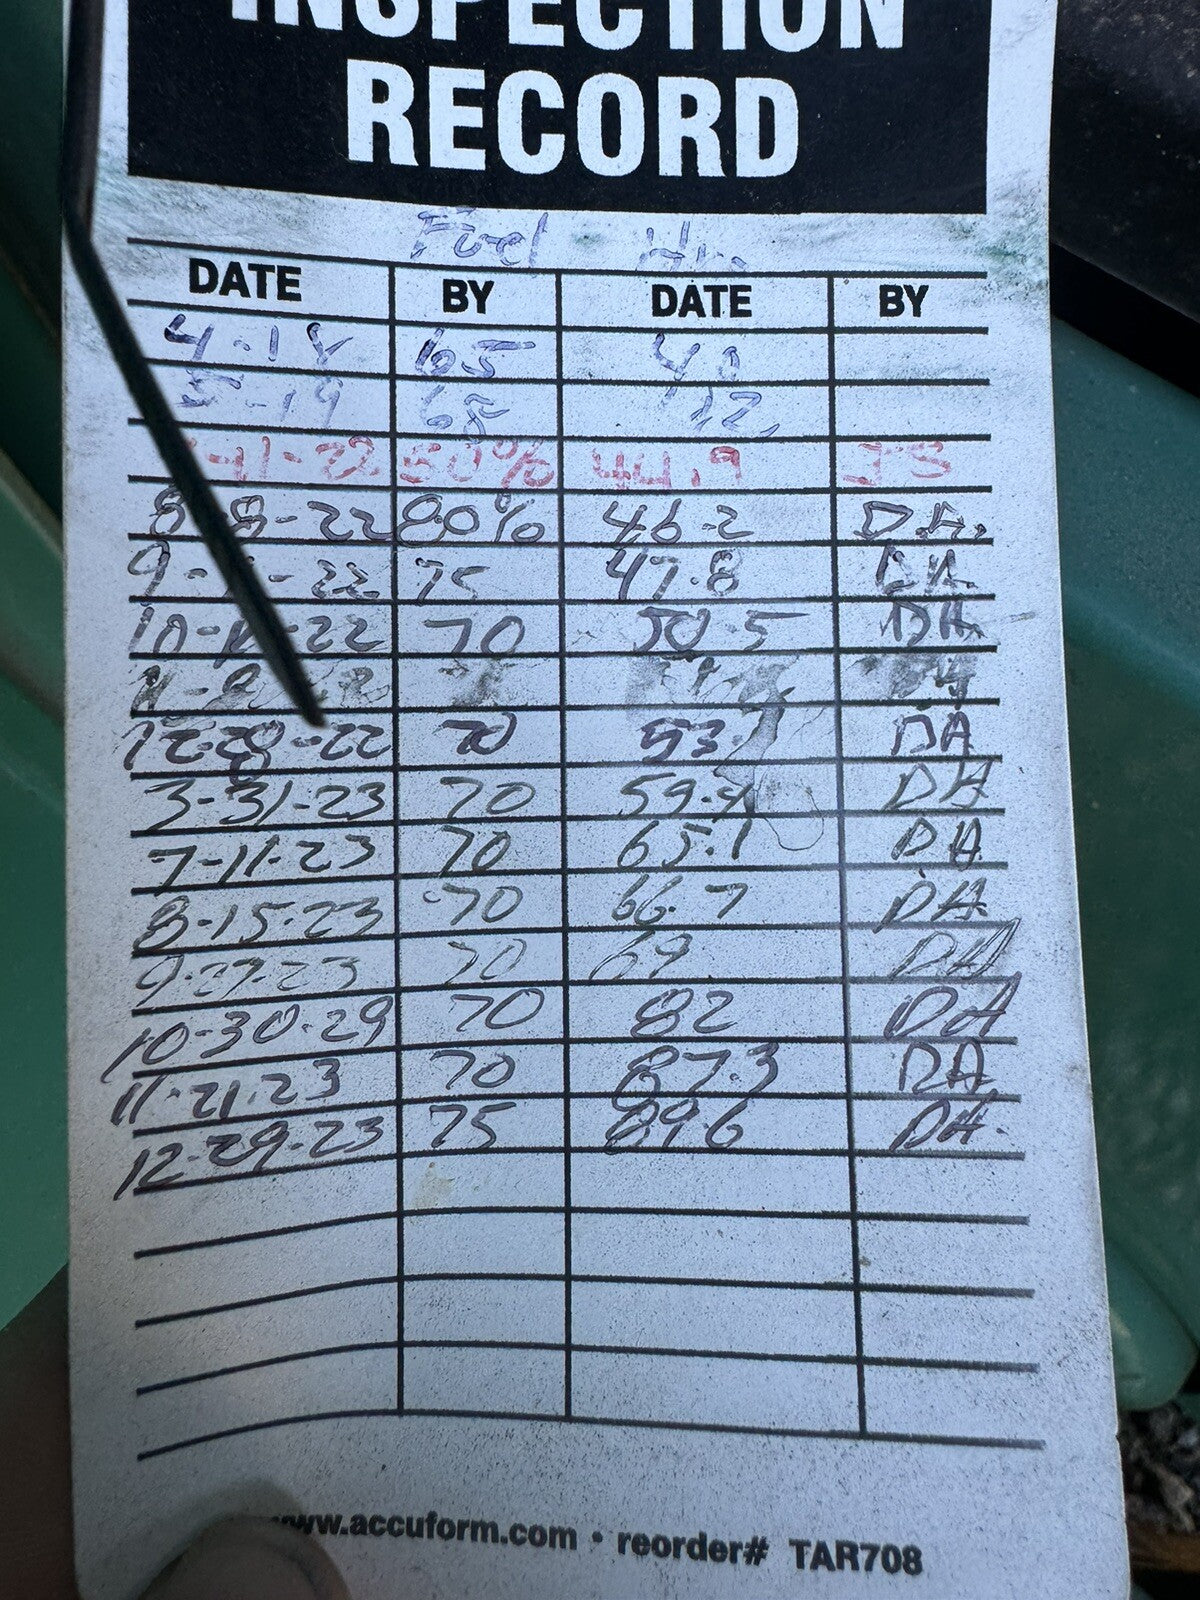 INSPECTION
RECORD
Fuel Hr.
DATE BY DATE BY
4-18 65 40
5-19 65
-11-22 80% 44.9 JS
8-8-22 80% 46.2 D.A.
9- -22 75 47.8 DA
10- -22 70 50.5 DA
11- DA
12-28-22 70 53.7 DA
3-31-23 70 59.4 DA
7-11-23 70 65.1 DA
8-15-23 70 66.7 DA
9-27-23 70 69 DA
10-30-29 70 82 DA
11-21-23 70 87.3 DA
12-29-23 75 89.6 DA.
www.accuform.com • reorder# TAR708